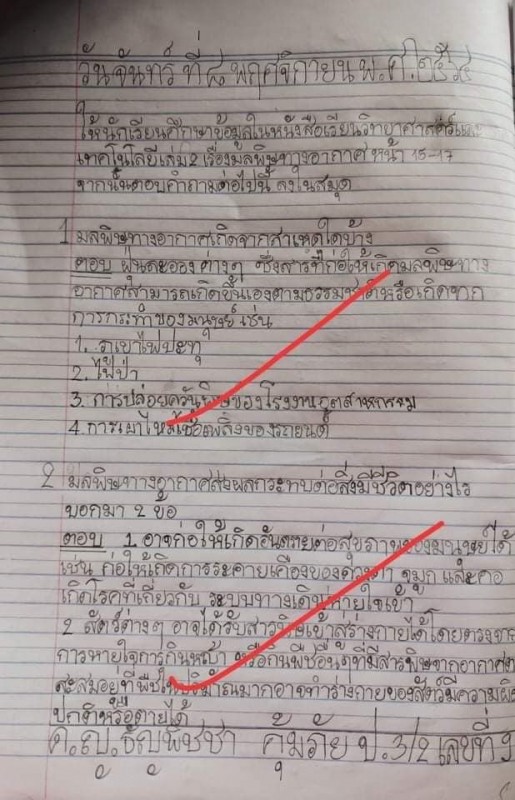 วันจันทร์ ที่ ๘ พฤศจิกายน พ.ศ.๒๕๖๔
ให้นักเรียนศึกษาข้อมูลในหนังสือเรียนวิทยาศาสตร์และ
เทคโนโลยีเล่ม 2 เรื่องมลพิษทางอากาศ หน้า 15-17
จากนั้นตอบคำถามต่อไปนี้ ลงในสมุด
1 มลพิษทางอากาศเกิดจากสาเหตุใดบ้าง
ตอบ ฝุ่นละอองต่างๆ ซึ่งสารที่ก่อให้เกิดมลพิษทาง
อากาศสามารถเกิดขึ้นเองตามธรรมชาติหรือเกิดจาก
การกระทำของมนุษย์ เช่น
1. ภูเขาไฟปะทุ
2. ไฟป่า
3. การปล่อยควันพิษของโรงงานอุตสาหกรรม
4. การเผาไหม้เชื้อเพลิงของรถยนต์
2 มลพิษทางอากาศส่งผลกระทบต่อสิ่งมีชีวิตอย่างไร
บอกมา 2 ข้อ
ตอบ 1. อาจก่อให้เกิดอันตรายต่อสุขภาพของมนุษย์ได้
เช่น ก่อให้เกิดการระคายเคืองของดวงตา จมูก และคอ
เกิดโรคที่เกี่ยวกับ ระบบทางเดินหายใจเข้า
2 สัตว์ต่างๆ อาจได้รับสารพิษเข้าสู่ร่างกายได้โดยตรงจาก
การหายใจการกินหญ้า หรือกินพืชอื่นๆที่มีสารพิษจากอากาศ
สะสมอยู่ที่พืชในปริมาณมากอาจทำร่างกายของสัตว์มีความผิด
ปกติหรือตายได้
ด.ญ.ธัญพิชชา คุ้มภัย ป.3/2 เลขที่ 9